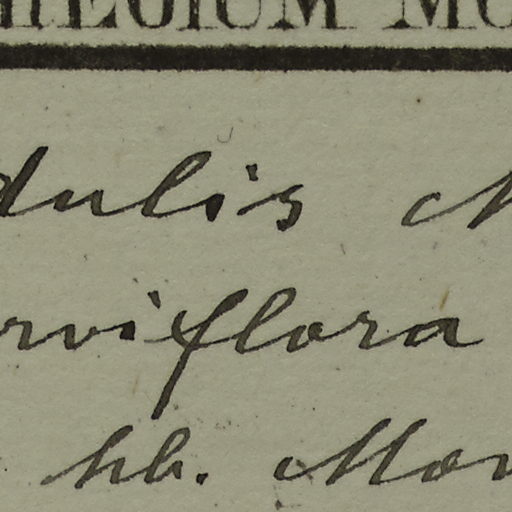 REGIUM MO
dulis M
rviflora
hb. Mon